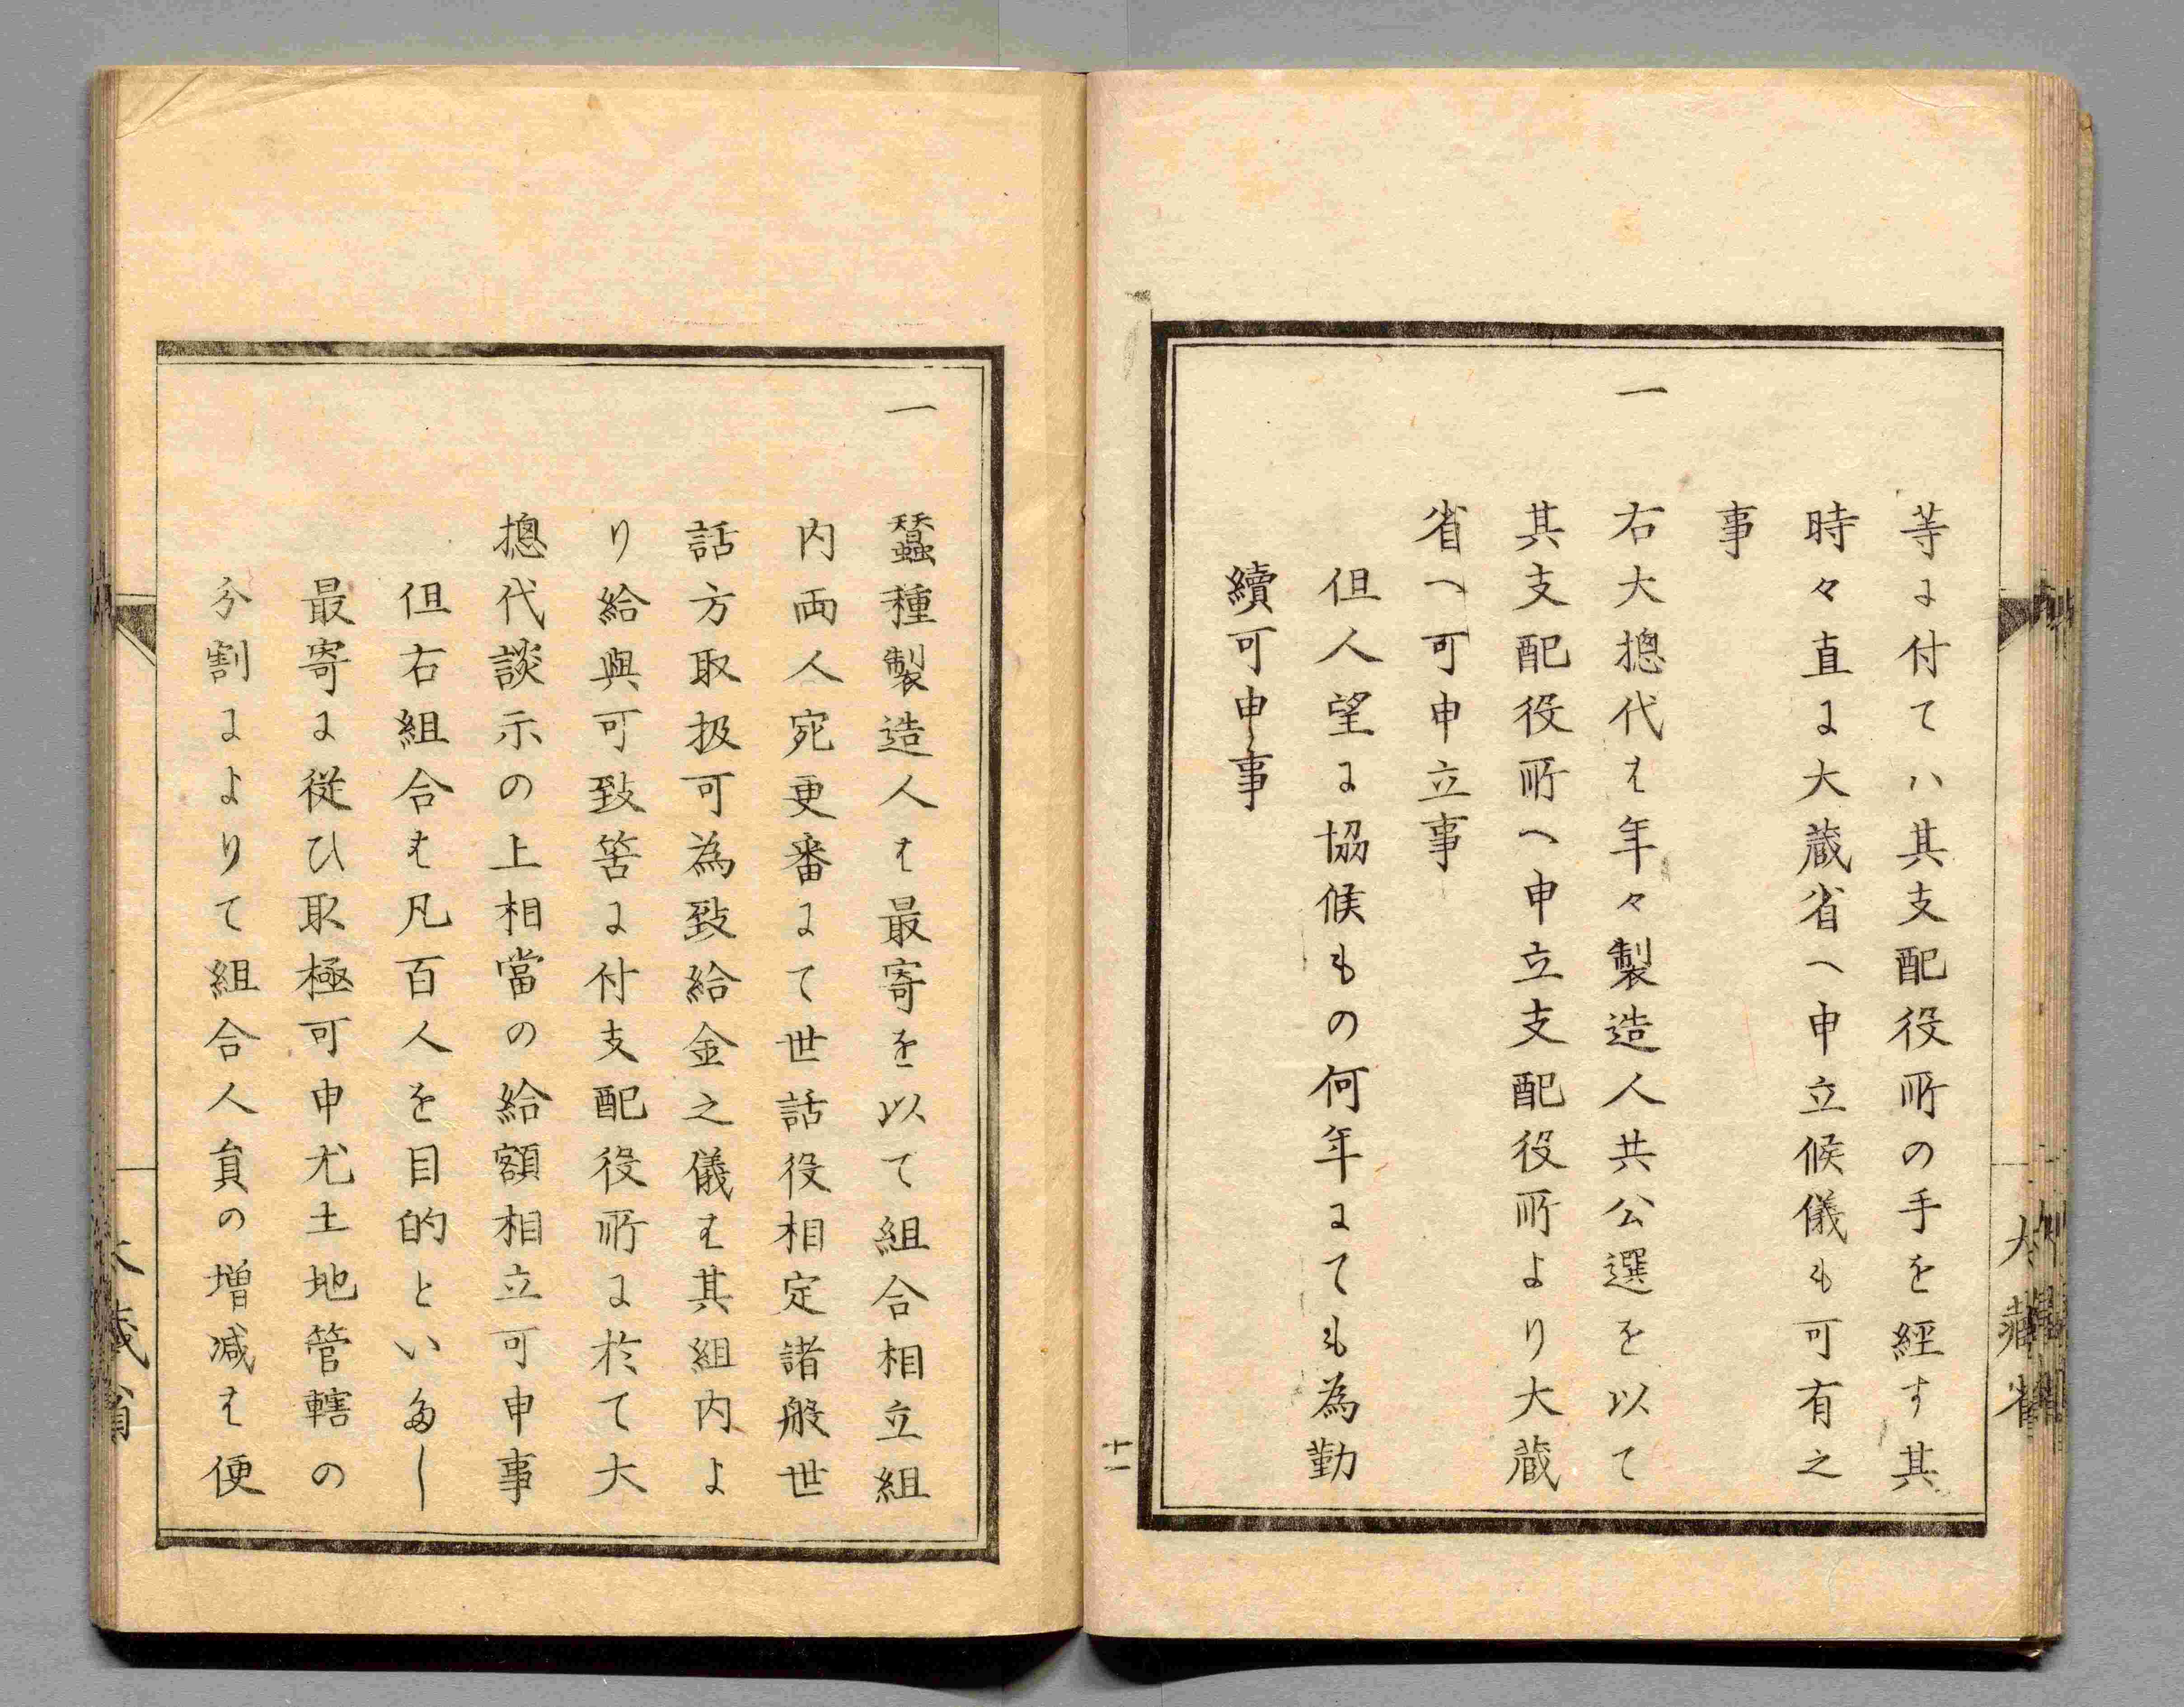 等に付てハ其支配役所の手を経す其
時々直に大蔵省へ申立候儀も可有之
事
一 右大摠代は年々製造人共公選を以て
其支配役所へ申立支配役所より大蔵
省へ可申立事
但人望に協候もの何年にても為勤
續可申事
十一
一 蠶種製造人は最寄を以て組合相立組
内両人宛更番にて世話役相定諸般世
話方取扱可為致給金之儀は其組内よ
り給與可致筈に付支配役所に於て大
摠代談示の上相當の給額相立可申事
但右組合は凡百人を目的といたし
最寄に従ひ取極可申尤土地管轄の
分割によりて組合人員の増減は便
大蔵省
大蔵省